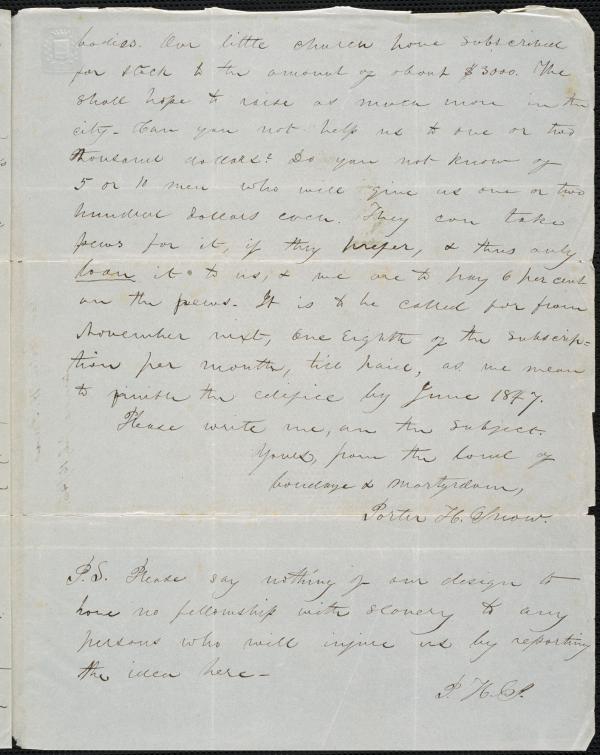 bodies. Our little church have subscribed
for stock to the amount of about $3000. We
shall hope to raise as much more in the
city. Can you not help us to one or two
thousand dollars? Do you not know of
5 or 10 men who will give us one or two
hundred dollars each. They can take
pews for it, if they prefer, & thus only
loan it to us, & we are to pay 6 per cent
on the pews. It is to be called for from
November next, one Eighth of the subscrip=
tion per month, till paid, as we mean
to finish the edifice by June 1847.
Please write me, on the subject.
Yours, from the land of
bondage & martyrdom,
Porter H. Snow.
P.S. Please say nothing of our design to
have no fellowship with slavery to any
persons who will injure us by reporting
the idea here-
P. H. S.